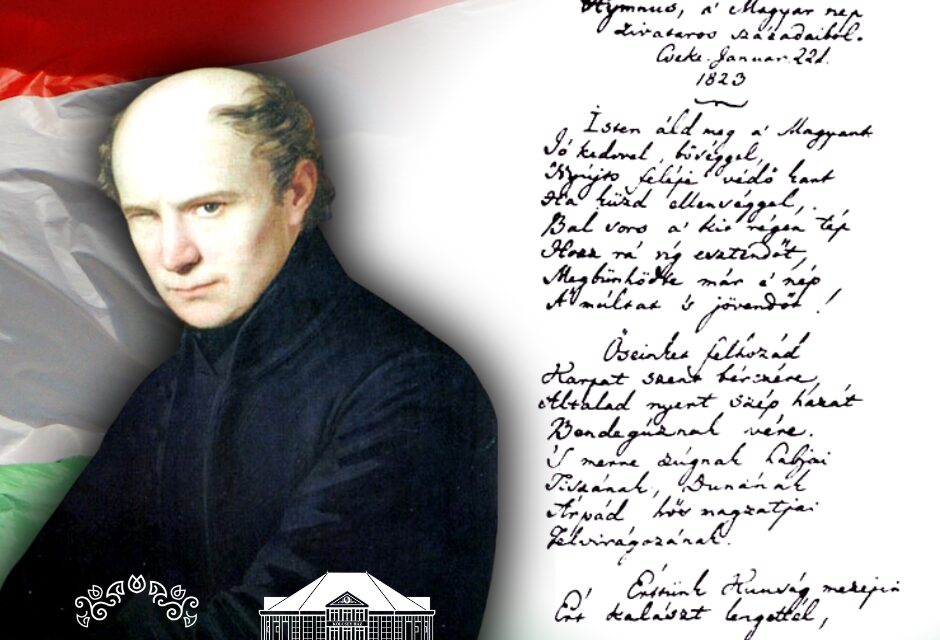 Hymnus, a' Magyar nep
zivataros századaiból.
Cseke. Januar. 22d.
1823
Isten áld meg a' Magyart
Jó kedvvel, bőséggel,
Nyújts feléje védő kart
Ha küzd ellenséggel,
Bal sors a' kit régen tép
Hozz rá víg esztendőt,
Megbűnhödte már e' nép
A' múltat 's jövendőt!
Őseinket felhozád
Kárpát szent bérczére,
Általad nyert szép hazát
Bendegúznak vére.
'S merre zúgnak habjai
Tiszának, Dunának
Árpád hős magzatjai
Felvirágozának.
Értünk Kunság mezejin
Ért kalászt lengettél,
KÖLCSEY HÁZ